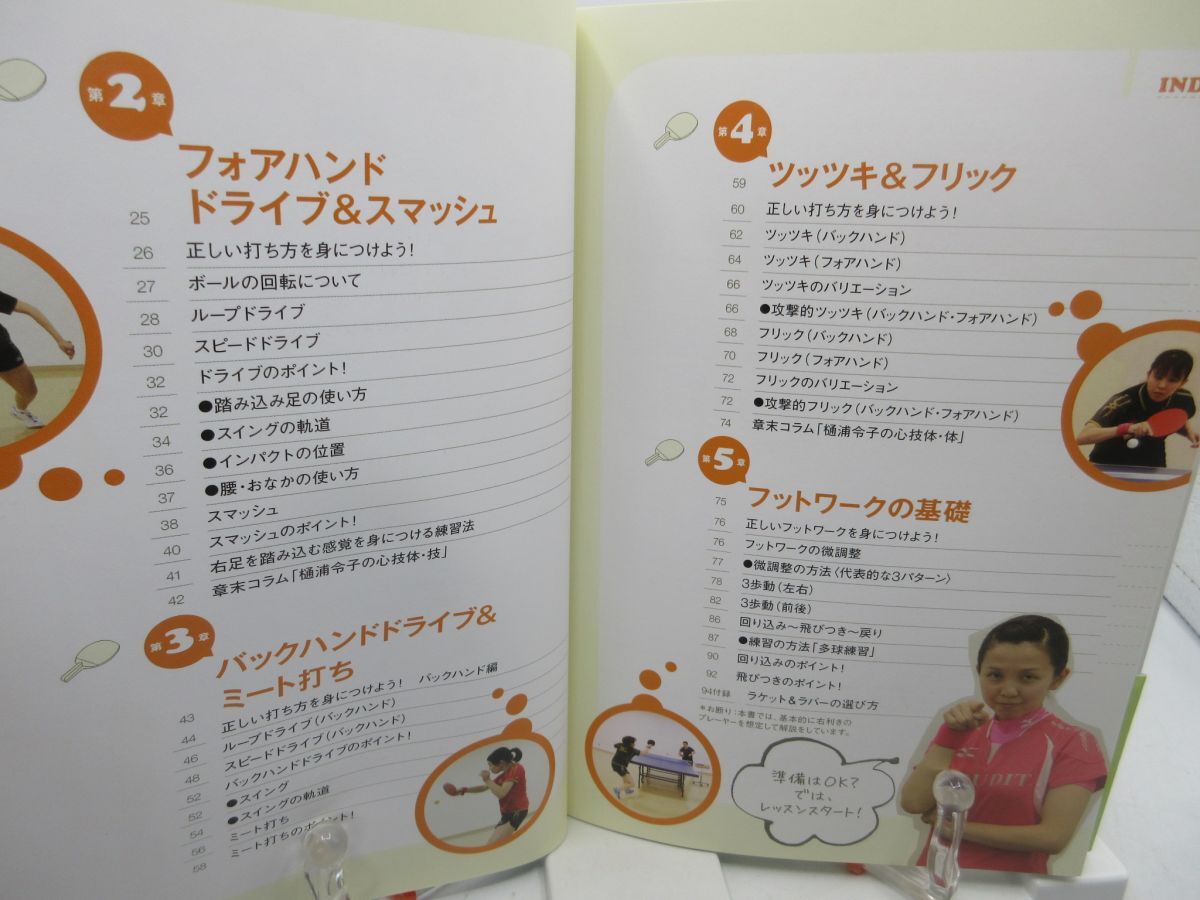 第2章
フォアハンド
25 ドライブ&スマッシュ
26 正しい打ち方を身につけよう!
27 ボールの回転について
28 ループドライブ
30 スピードドライブ
32 ドライブのポイント!
32 ●踏み込み足の使い方
34 ●スイングの軌道
36 ●インパクトの位置
37 ●腰・おなかの使い方
38 スマッシュ
40 スマッシュのポイント!
41 右足を踏み込む感覚を身につける練習法
42 章末コラム「樋浦令子の心技体・技」
第3章
バックハンドドライブ&
43 ミート打ち
44 正しい打ち方を身につけよう! バックハンド編
46 ループドライブ(バックハンド)
48 スピードドライブ(バックハンド)
52 バックハンドドライブのポイント!
52 ●スイング
54 ●スイングの軌道
56 ミート打ち
58 ミート打ちのポイント!
IND
第4章
59 ツッツキ&フリック
60 正しい打ち方を身につけよう!
62 ツッツキ(バックハンド)
64 ツッツキ(フォアハンド)
66 ツッツキのバリエーション
66 ●攻撃的ツッツキ(バックハンド・フォアハンド)
68 フリック(バックハンド)
70 フリック(フォアハンド)
72 フリックのバリエーション
72 ●攻撃的フリック(バックハンド・フォアハンド)
74 章末コラム「樋浦令子の心技体・体」
第5章
75 フットワークの基礎
76 正しいフットワークを身につけよう!
76 フットワークの微調整
77 ●微調整の方法〈代表的な3パターン〉
78 3歩動(左右)
82 3歩動(前後)
86 回り込み〜飛びつき〜戻り
87 ●練習の方法「多球練習」
90 回り込みのポイント!
92 飛びつきのポイント!
94付録 ラケット&ラバーの選び方
*お断り:本書では、基本的に右利きの
プレーヤーを想定して解説をしています。
準備はOK?
では、
レッスンスタート!